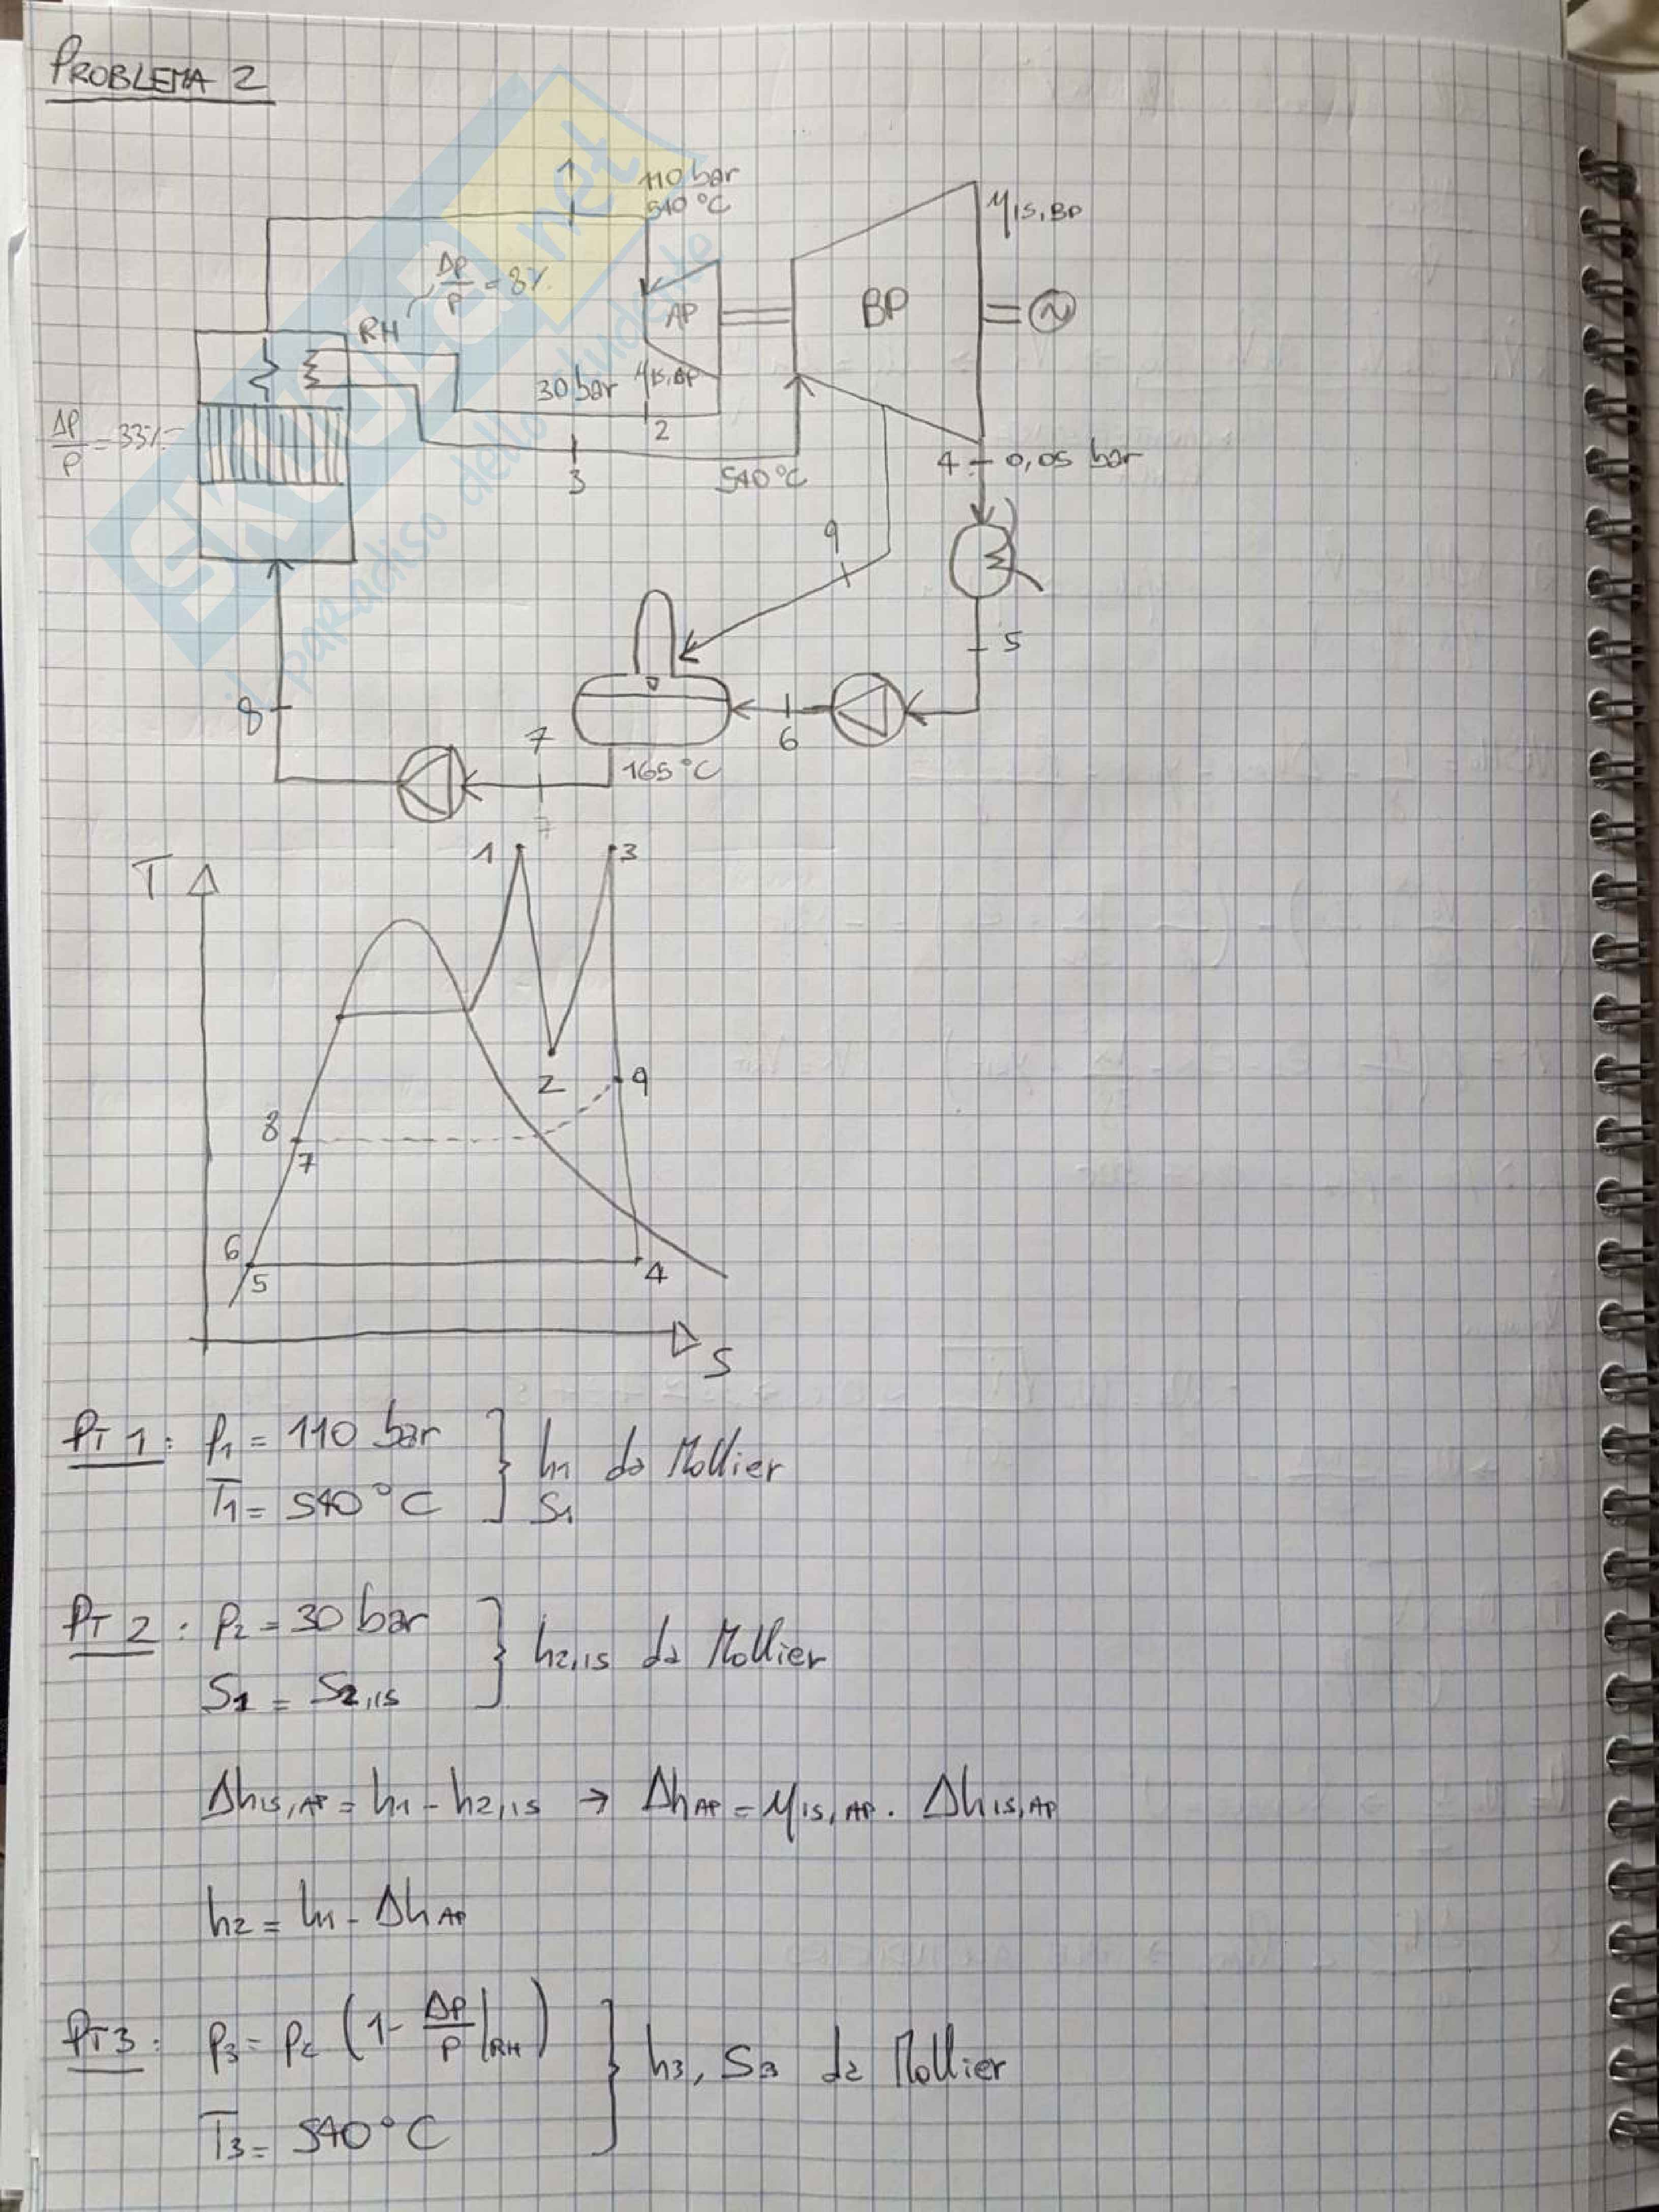 PROBLEMA 2
1
110 bar
540 °C
ηIS,BP
ΔP/P = 8%
RH
AP
BP
30 bar
ηIS,AP
2
ΔP/P = 33%
3
540 °C
4
0,05 bar
9
5
8
7
6
165 °C
7
T
1
3
2
9
8
7
6
5
4
S
PT 1: P1 = 110 bar
T1 = 540 °C
h1 da Mollier
S1
PT 2: P2 = 30 bar
S1 = S2,IS
h2,IS da Mollier
ΔhIS,AP = h1 - h2,IS → ΔhAP = ηIS,AP · ΔhIS,AP
h2 = h1 - ΔhAP
PT 3: P3 = P2 (1 - ΔP/P|RH)
T3 = 540 °C
h3, S3 da Mollier
SKUOLA.net
il paradiso dello studente